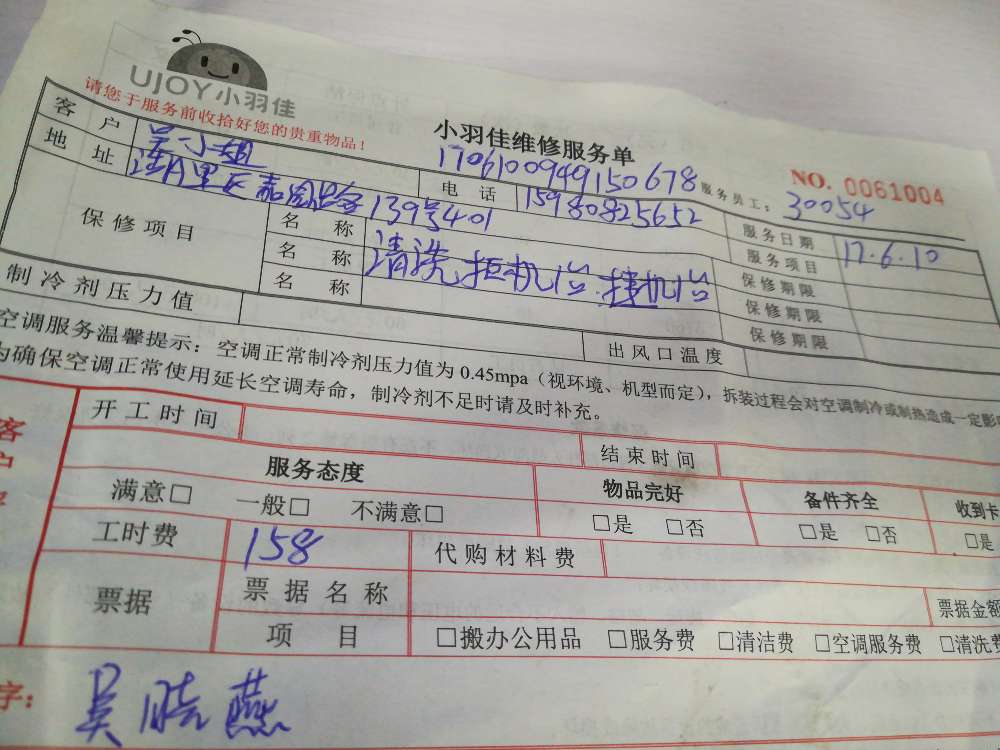 UJOY小羽佳
请您于服务前收拾好您的贵重物品！
小羽佳维修服务单
NO. 0061004
1706100949150678 服务员工：30054
客户 吴小姐 电话 15980825652 服务日期 17.6.10
地址 139号401 服务项目
保修项目 名称 清洗柜机1台.挂机1台 保修期限
名称 保修期限
名称 保修期限
制冷剂压力值 出风口温度
空调服务温馨提示：空调正常制冷剂压力值为 0.45mpa（视环境、机型而定），拆装过程会对空调制冷或制热造成一定影
为确保空调正常使用延长空调寿命，制冷剂不足时请及时补充。
开工时间 结束时间
服务态度 物品完好 备件齐全 收到卡
满意□ 一般□ 不满意□ □是 □否 □是 □否 □是
工时费 158 代购材料费
票据 票据名称 票据金额
项目 □搬办公用品 □服务费 □清洁费 □空调服务费 □清洗费
字： 吴晓燕